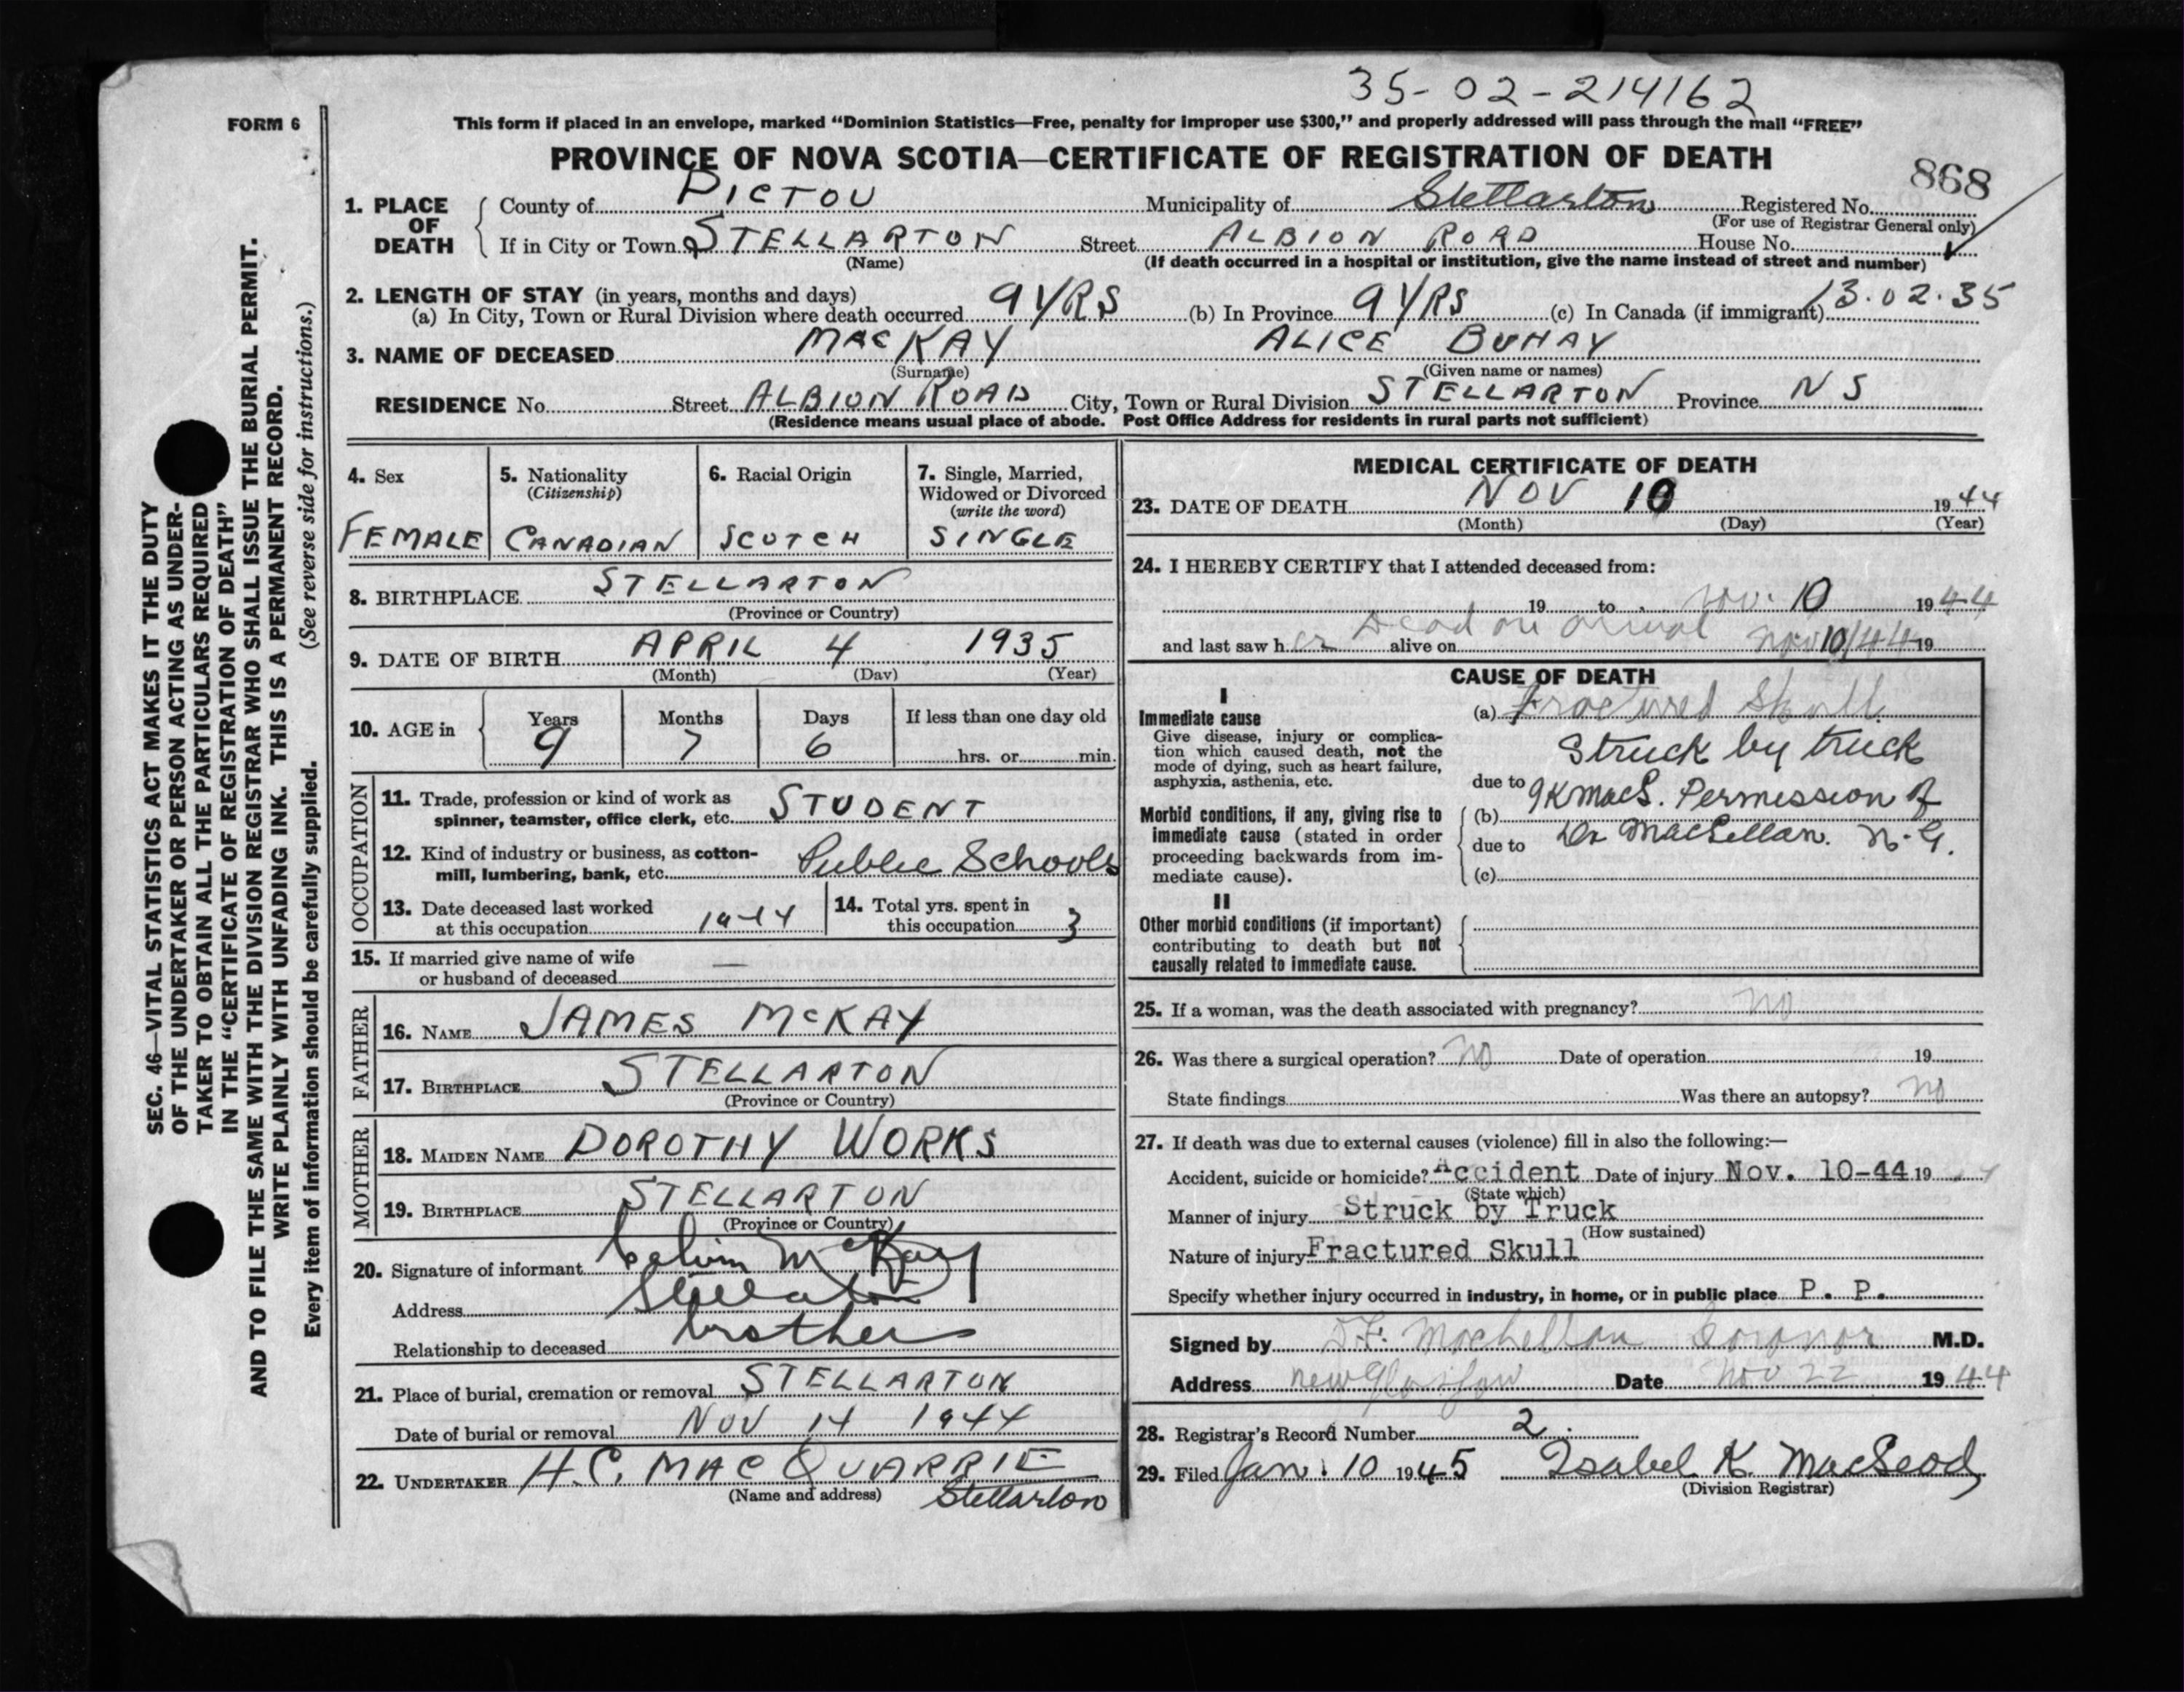 35-02-214162
FORM 6
This form if placed in an envelope, marked "Dominion Statistics—Free, penalty for improper use $300," and properly addressed will pass through the mail "FREE"
PROVINCE OF NOVA SCOTIA—CERTIFICATE OF REGISTRATION OF DEATH
868
1. PLACE OF DEATH
County of PICTOU Municipality of Stellarton Registered No.
(For use of Registrar General only)
If in City or Town STELLARTON Street ALBION ROAD House No.
(Name) (If death occurred in a hospital or institution, give the name instead of street and number)
2. LENGTH OF STAY (in years, months and days)
(a) In City, Town or Rural Division where death occurred 9 YRS (b) In Province 9 YRS (c) In Canada (if immigrant) 13.02.35
3. NAME OF DECEASED MACKAY ALICE
(Surname) (Given name or names)
RESIDENCE No. Street ALBION ROAD City, Town or Rural Division STELLARTON Province N S
(Residence means usual place of abode. Post Office Address for residents in rural parts not sufficient)
4. Sex
FEMALE
5. Nationality
(Citizenship)
CANADIAN
6. Racial Origin
SCOTCH
7. Single, Married,
Widowed or Divorced
(write the word)
SINGLE
8. BIRTHPLACE STELLARTON
(Province or Country)
9. DATE OF BIRTH APRIL 4 1935
(Month) (Day) (Year)
10. AGE in Years Months Days If less than one day old
9 7 6 hrs. or min.
OCCUPATION
11. Trade, profession or kind of work as
spinner, teamster, office clerk, etc. STUDENT
12. Kind of industry or business, as cotton-
mill, lumbering, bank, etc. Public Schools
13. Date deceased last worked
at this occupation 1944
14. Total yrs. spent in
this occupation 3
15. If married give name of wife
or husband of deceased —
FATHER
16. NAME JAMES McKAY
17. BIRTHPLACE STELLARTON
(Province or Country)
MOTHER
18. MAIDEN NAME DOROTHY WORKS
19. BIRTHPLACE STELLARTON
(Province or Country)
20. Signature of informant Calvin McKay
Address Stellarton
Relationship to deceased brother
21. Place of burial, cremation or removal STELLARTON
Date of burial or removal NOV 14 1944
22. UNDERTAKER H.C. MACQUARRIE
(Name and address) Stellarton
MEDICAL CERTIFICATE OF DEATH
23. DATE OF DEATH NOV 10 1944
(Month) (Day) (Year)
24. I HEREBY CERTIFY that I attended deceased from:
19 to Nov. 10 1944
and last saw her alive on Dead on arrival Nov 10/44 19
CAUSE OF DEATH
I
Immediate cause
Give disease, injury or complica-
tion which caused death, not the
mode of dying, such as heart failure,
asphyxia, asthenia, etc.
(a) Fractured Skull
Struck by truck
due to
IKMacL. Permission of
Morbid conditions, if any, giving rise to
immediate cause (stated in order
proceeding backwards from im-
mediate cause).
(b)
due to Dr MacLellan. N.G.
(c)
II
Other morbid conditions (if important)
contributing to death but not
causally related to immediate cause.
25. If a woman, was the death associated with pregnancy? no
26. Was there a surgical operation? no Date of operation 19
State findings Was there an autopsy? no
27. If death was due to external causes (violence) fill in also the following:—
Accident, suicide or homicide? Accident Date of injury Nov. 10-44 19
(State which)
Manner of injury Struck by Truck
(How sustained)
Nature of injury Fractured Skull
Specify whether injury occurred in industry, in home, or in public place P. P.
Signed by MacLellan Coronor M.D.
Address New Glasgow Date Nov 22 1944
28. Registrar's Record Number 2.
29. Filed Jan. 10 1945 Isabel K. MacLeod
(Division Registrar)
SEC. 46—VITAL STATISTICS ACT MAKES IT THE DUTY
OF THE UNDERTAKER OR PERSON ACTING AS UNDER-
TAKER TO OBTAIN ALL THE PARTICULARS REQUIRED
IN THE "CERTIFICATE OF REGISTRATION OF DEATH"
AND TO FILE THE SAME WITH THE DIVISION REGISTRAR WHO SHALL ISSUE THE BURIAL PERMIT.
WRITE PLAINLY WITH UNFADING INK. THIS IS A PERMANENT RECORD.
Every item of information should be carefully supplied. (See reverse side for instructions.)